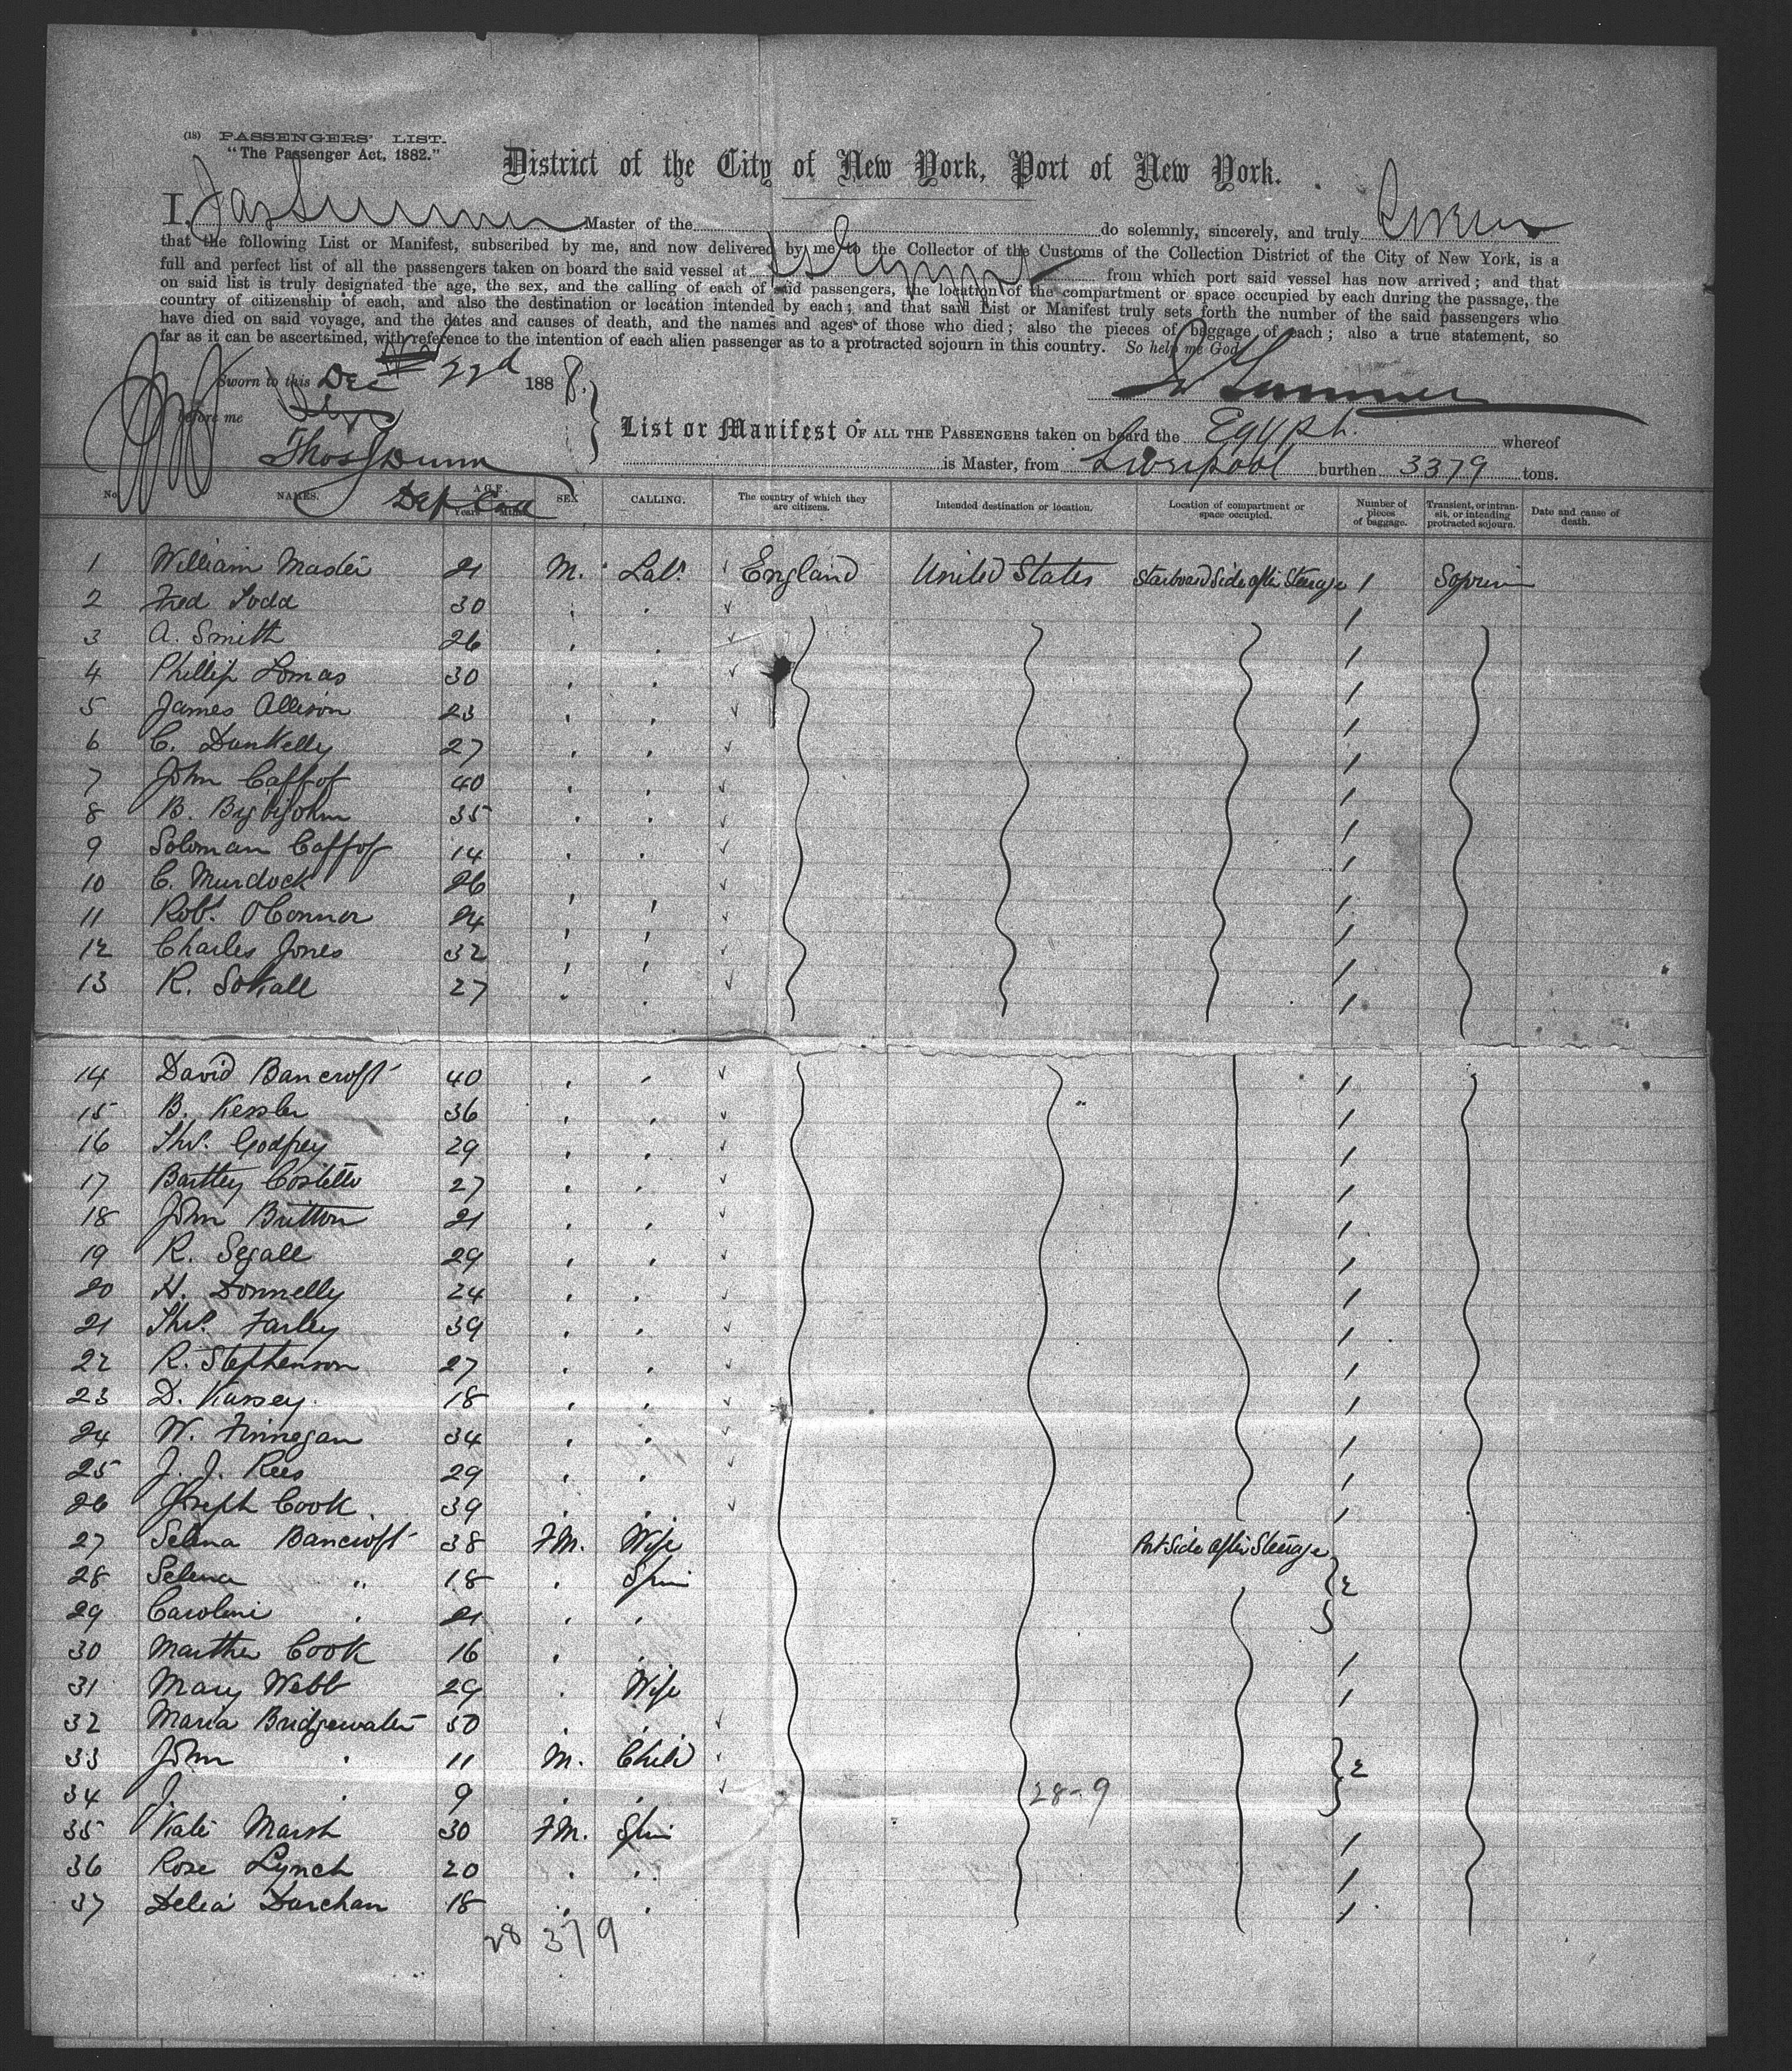 (18) PASSENGERS' LIST.
"The Passenger Act, 1882."
District of the City of New York, Port of New York.
I, Jas Sumner Master of the do solemnly, sincerely, and truly
that the following List or Manifest, subscribed by me, and now delivered by me to the Collector of the Customs of the Collection District of the City of New York, is a
full and perfect list of all the passengers taken on board the said vessel at from which port said vessel has now arrived; and that
on said list is truly designated the age, the sex, and the calling of each of said passengers, the location of the compartment or space occupied by each during the passage, the
country of citizenship of each, and also the destination or location intended by each; and that said List or Manifest truly sets forth the number of the said passengers who
have died on said voyage, and the dates and causes of death, and the names and ages of those who died; also the pieces of baggage of each; also a true statement, so
far as it can be ascertained, with reference to the intention of each alien passenger as to a protracted sojourn in this country. So help me God
Sworn to this Dec 22d 1888.
J Sumner
before me
Thos J Dunn
Dep Coll
List or Manifest OF ALL THE PASSENGERS taken on board the Egypt. whereof
is Master, from Liverpool burthen 3379 tons.
No. NAMES. AGE. Years Mths. SEX CALLING. The country of which they are citizens. Intended destination or location. Location of compartment or space occupied. Number of pieces of baggage. Transient, or in transit, or intending protracted sojourn. Date and cause of death.
1 William Master 21 M. Labr England United States Starboard Side after Steerage 1
2 Fred Todd 30 1
3 A. Smith 26 1
4 Phillip Lomas 30 1
5 James Allison 23 1
6 C. Dunkelly 27 1
7 John Caffof 40 1
8 B. 35 1
9 Soloman Caffof 14 1
10 C. Murdock 26 1
11 Robt. O'Connor 24 1
12 Charles Jones 32 1
13 R. Sokall 27 1
14 David Bancroft 40 1
15 B. Kessler 36 1
16 Thos. Godfrey 29 1
17 Bartley Costello 27 1
18 John Britton 21 1
19 R. Segall 29 1
20 H. Donnelly 24 1
21 Thos. Farley 39 1
22 R. Stephenson 27 1
23 D. Kassey. 18 1
24 W. Finnegan 34 1
25 J. J. Rees 29 1
26 Joseph Cook 39 1
27 Selena Bancroft 38 FM. Wife Port Side after Steerage
28 Selena " 18 Spin } 2
29 Caroline " 21
30 Martha Cook 16 1
31 Mary Webb 29 Wife 1
32 Maria Bridgewater 30
33 John " 11 M. Child } 2
34 J. " 9 28-9
35 Kate Marsh 30 FM. Spin 1
36 Rose Lynch 20 1
37 Delia Darchan 18 1
28 379